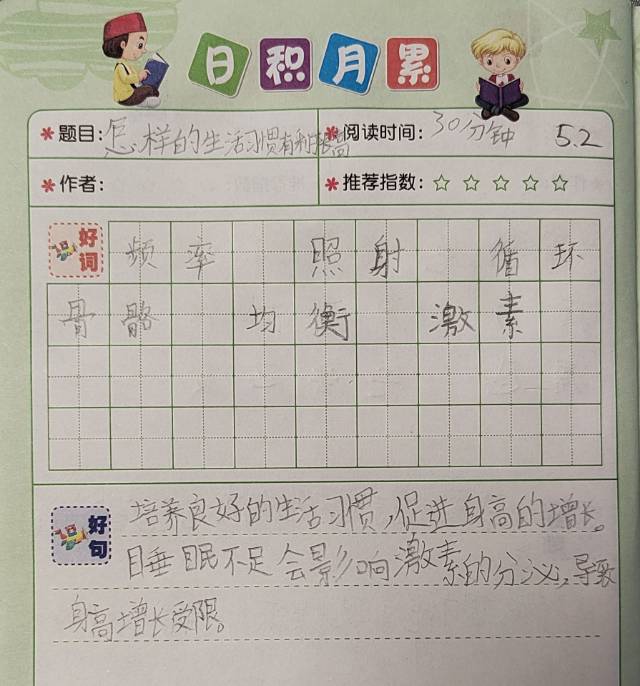 日积月累
题目：怎样的生活习惯有利长高 阅读时间：30分钟 5.2
作者： 推荐指数：☆ ☆ ☆ ☆ ☆
好词 频率 照射 循环
骨骼 均衡 激素
好句 培养良好的生活习惯，促进身高的增长。
睡眠不足会影响激素的分泌，导致
身高增长受限。